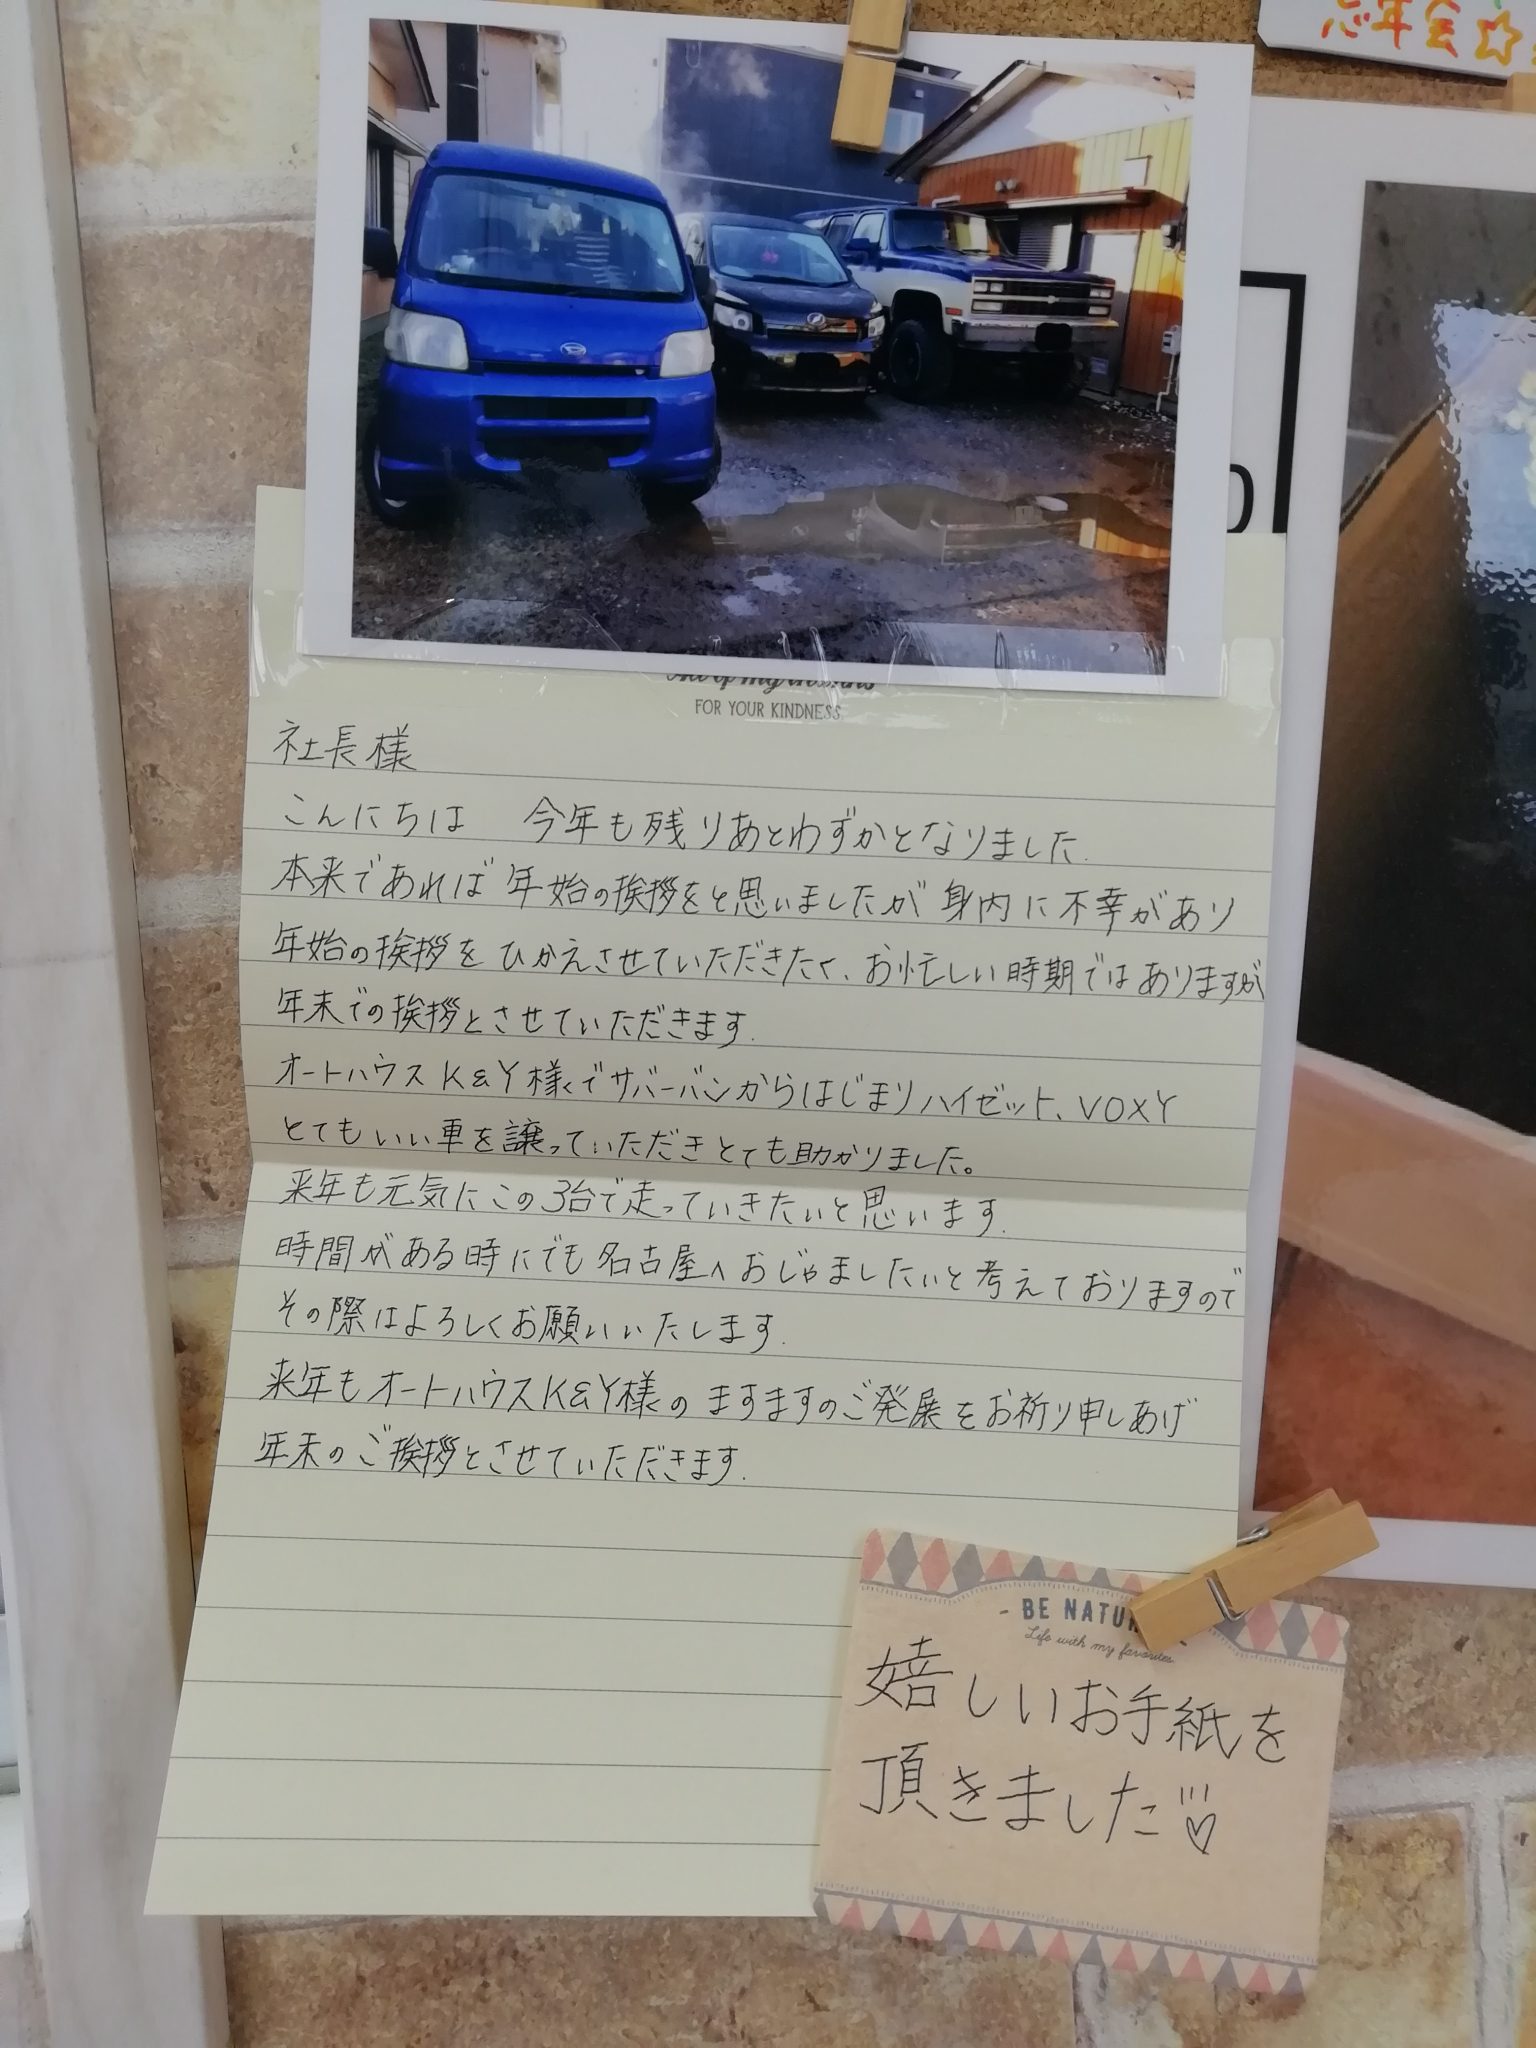 忘年会☆
FOR YOUR KINDNESS
社長様
こんにちは 今年も残りあとわずかとなりました.
本来であれば年始の挨拶をと思いましたが身内に不幸があり
年始の挨拶をひかえさせていただきたく、お忙しい時期ではありますが
年末での挨拶とさせていただきます.
オートハウスK&Y様でサバーバンからはじまりハイゼット、VOXY
とてもいい車を譲っていただきとても助かりました。
来年も元気にこの3台で走っていきたいと思います.
時間がある時にでも名古屋へおじゃましたいと考えておりますので
その際はよろしくお願いいたします.
来年もオートハウスK&Y様のますますのご発展をお祈り申しあげ
年末のご挨拶とさせていただきます.
- BE NATU
Life with my favorites
嬉しいお手紙を
頂きました♡